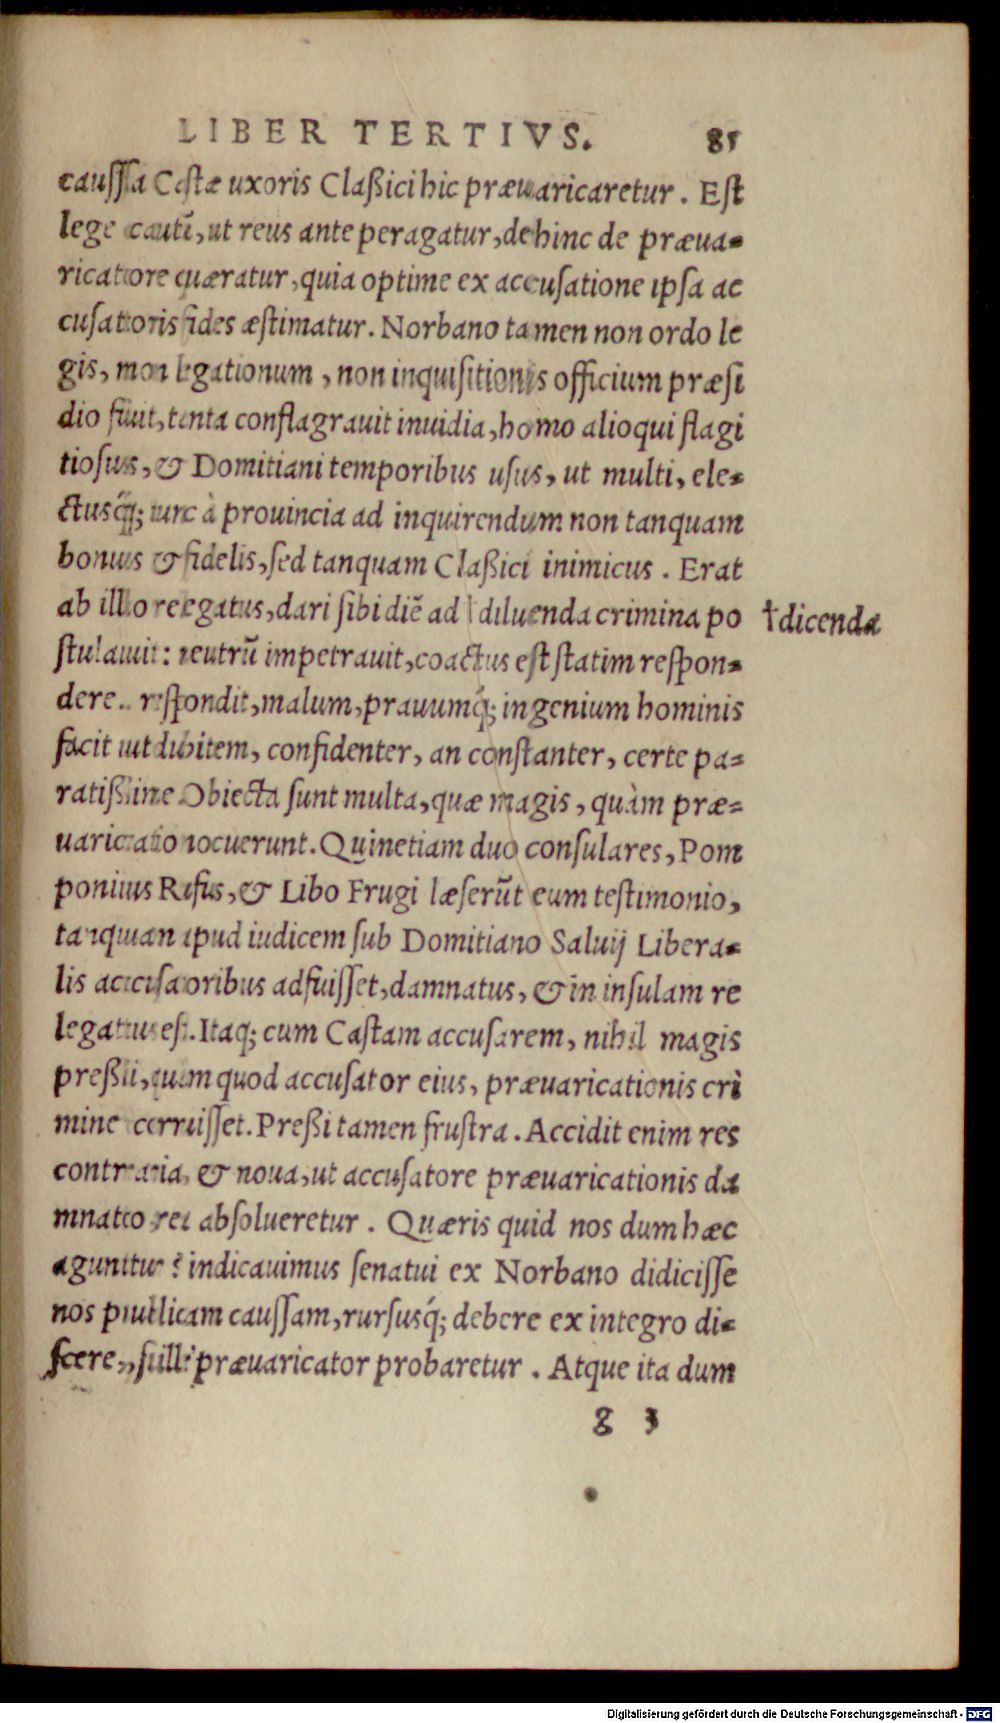 LIBER TERTIVS. 85
caussa Castæ uxoris Claßici hic præuaricaretur. Est
lege cautũ, ut reus ante peragatur, dehinc de præua-
ricatore quæratur, quia optime ex accusatione ipsa ac
cusatoris fides æstimatur. Norbano tamen non ordo le
gis, non legationum, non inquisitionis officium præsi
dio fuit, tanta conflagrauit inuidia, homo alioqui flagi
tiosus, & Domitiani temporibus usus, ut multi, ele-
ctusq́; tunc à prouincia ad inquirendum non tanquam
bonus & fidelis, sed tanquam Claßici inimicus. Erat
ab illo relegatus, dari sibi diē ad diluenda crimina po
†dicenda
stulauit: neutrũ impetrauit, coactus est statim respon-
dere. respondit, malum, prauumq́; ingenium hominis
facit ut dubitem, confidenter, an constanter, certe pa-
ratißime Obiecta sunt multa, quæ magis, quàm præ-
uaricatio nocuerunt. Quinetiam duo consulares, Pom
ponius Rufus, & Libo Frugi læserũt eum testimonio,
tanquam apud iudicem sub Domitiano Saluij Libera-
lis accusatoribus adfuisset, damnatus, & in insulam re
legatus est. Itaq; cum Castam accusarem, nihil magis
preßi, quam quod accusator eius, præuaricationis cri
mine corruisset. Preßi tamen frustra. Accidit enim res
contraria, & noua, ut accusatore præuaricationis da
mnato rea absolueretur. Quæris quid nos dum hæc
aguntur? indicauimus senatui ex Norbano didicisse
nos publicam caussam, rursusq́; debere ex integro di-
scere, si ille præuaricator probaretur. Atque ita dum
g 3
Digitalisierung gefördert durch die Deutsche Forschungsgemeinschaft - DFG